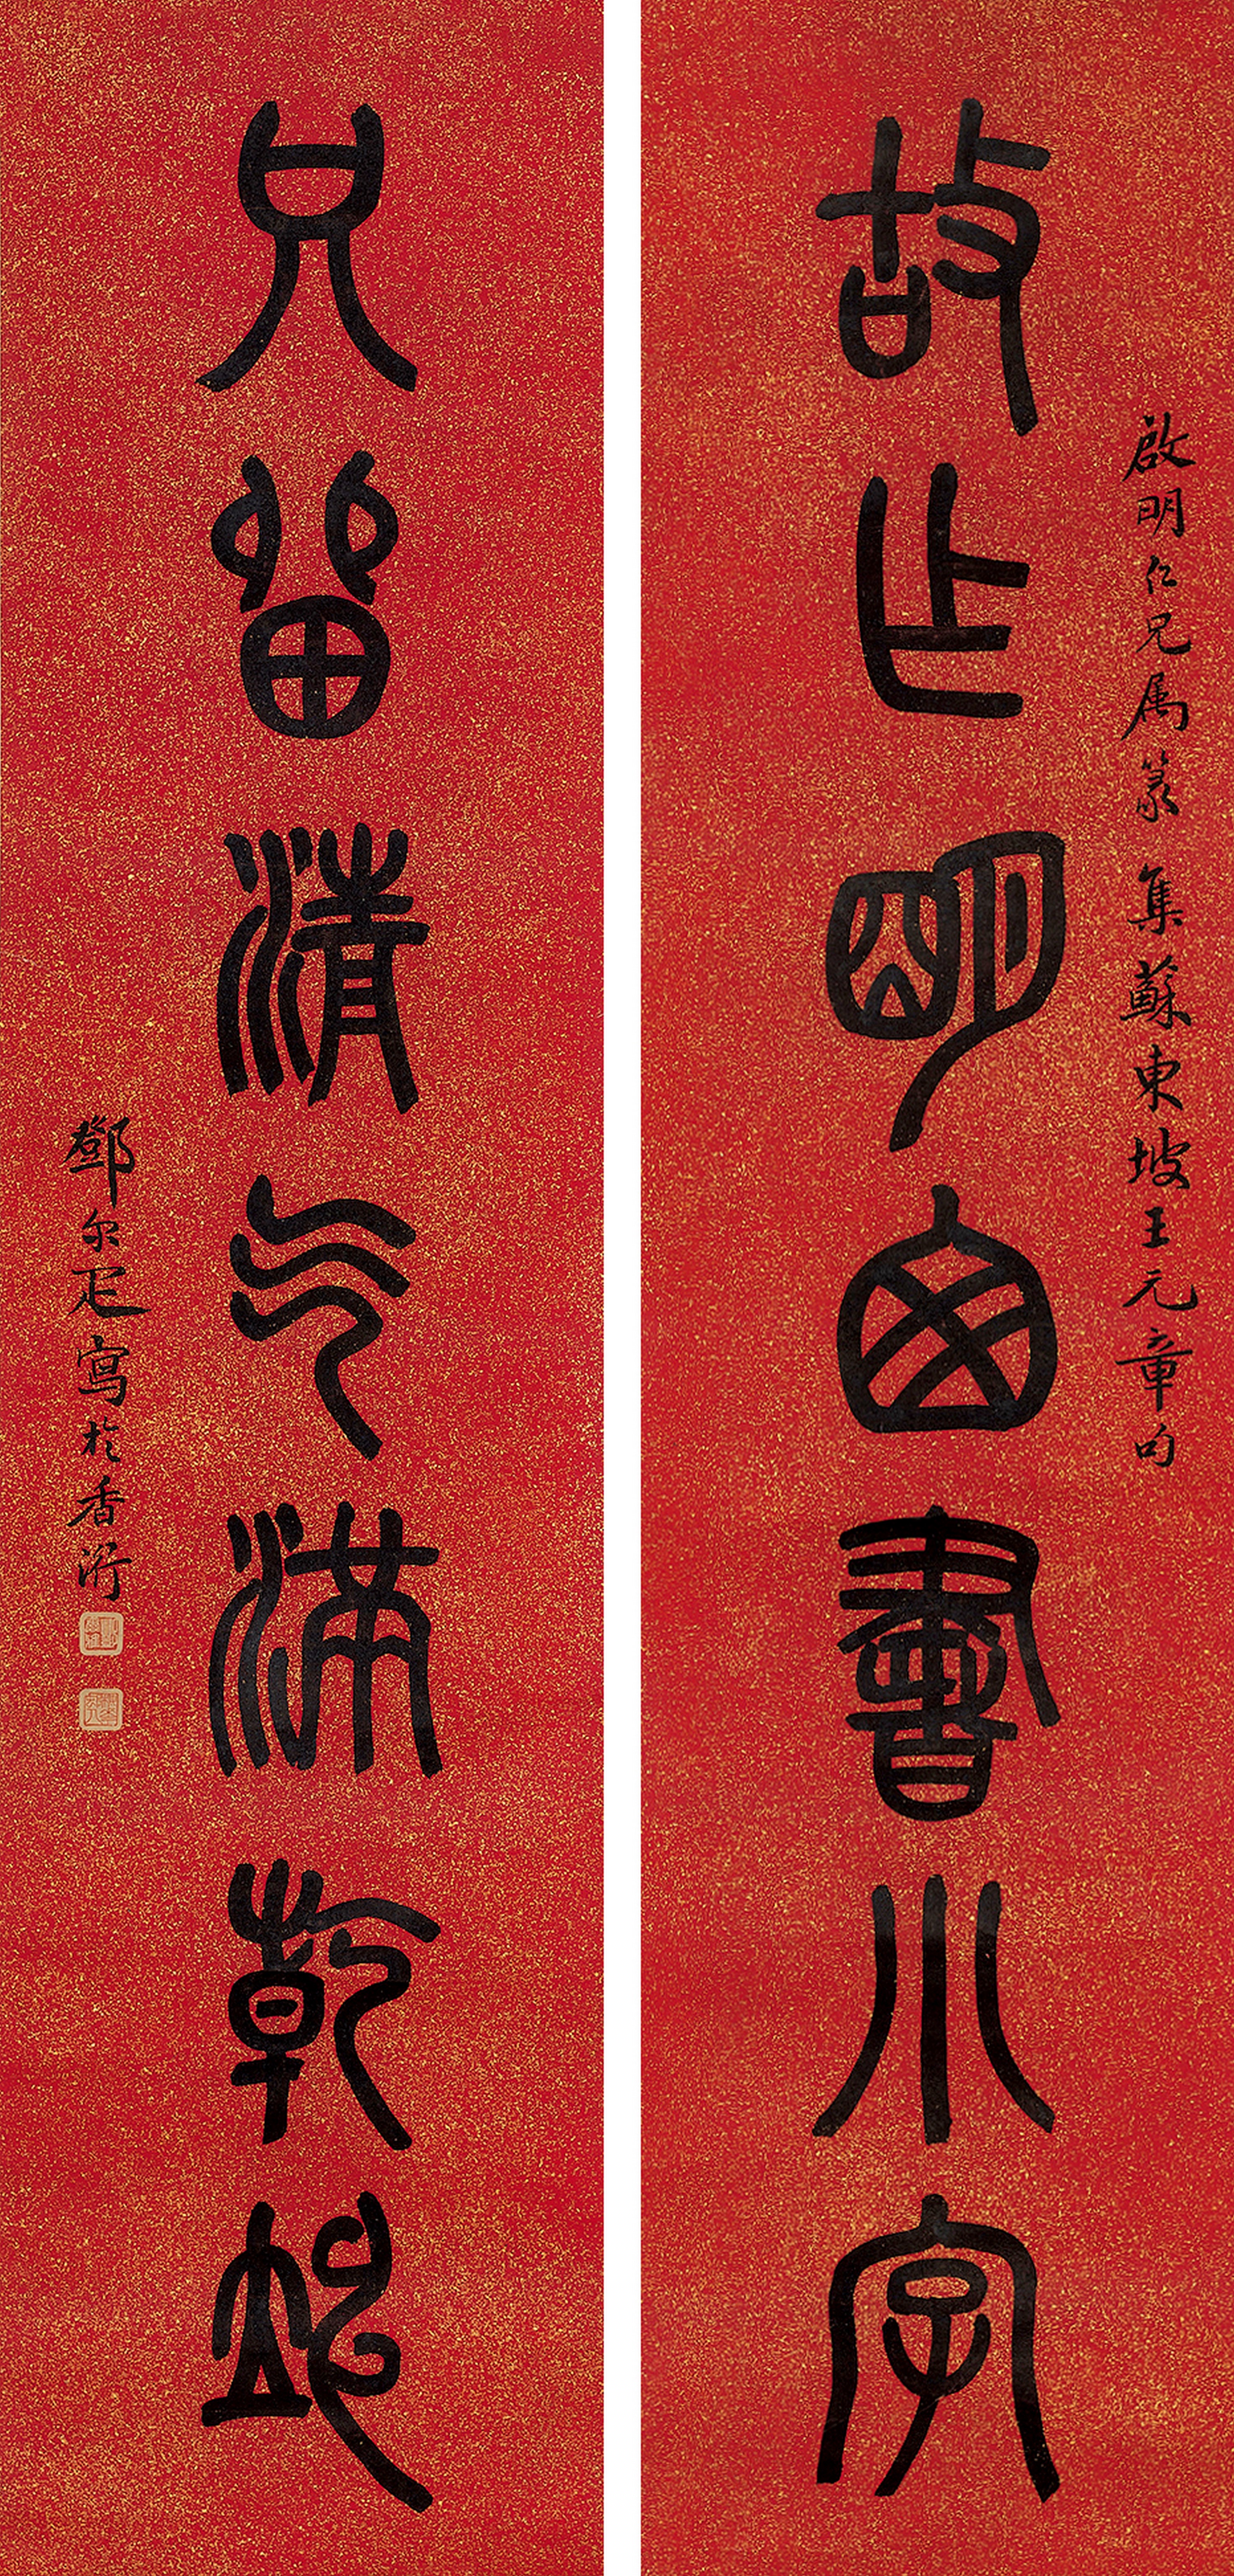 故乍明囱書小字
啟明仁兄属篆 集蘇東坡王元章句
只畱清气滿乾坤
鄧尔疋寫於香